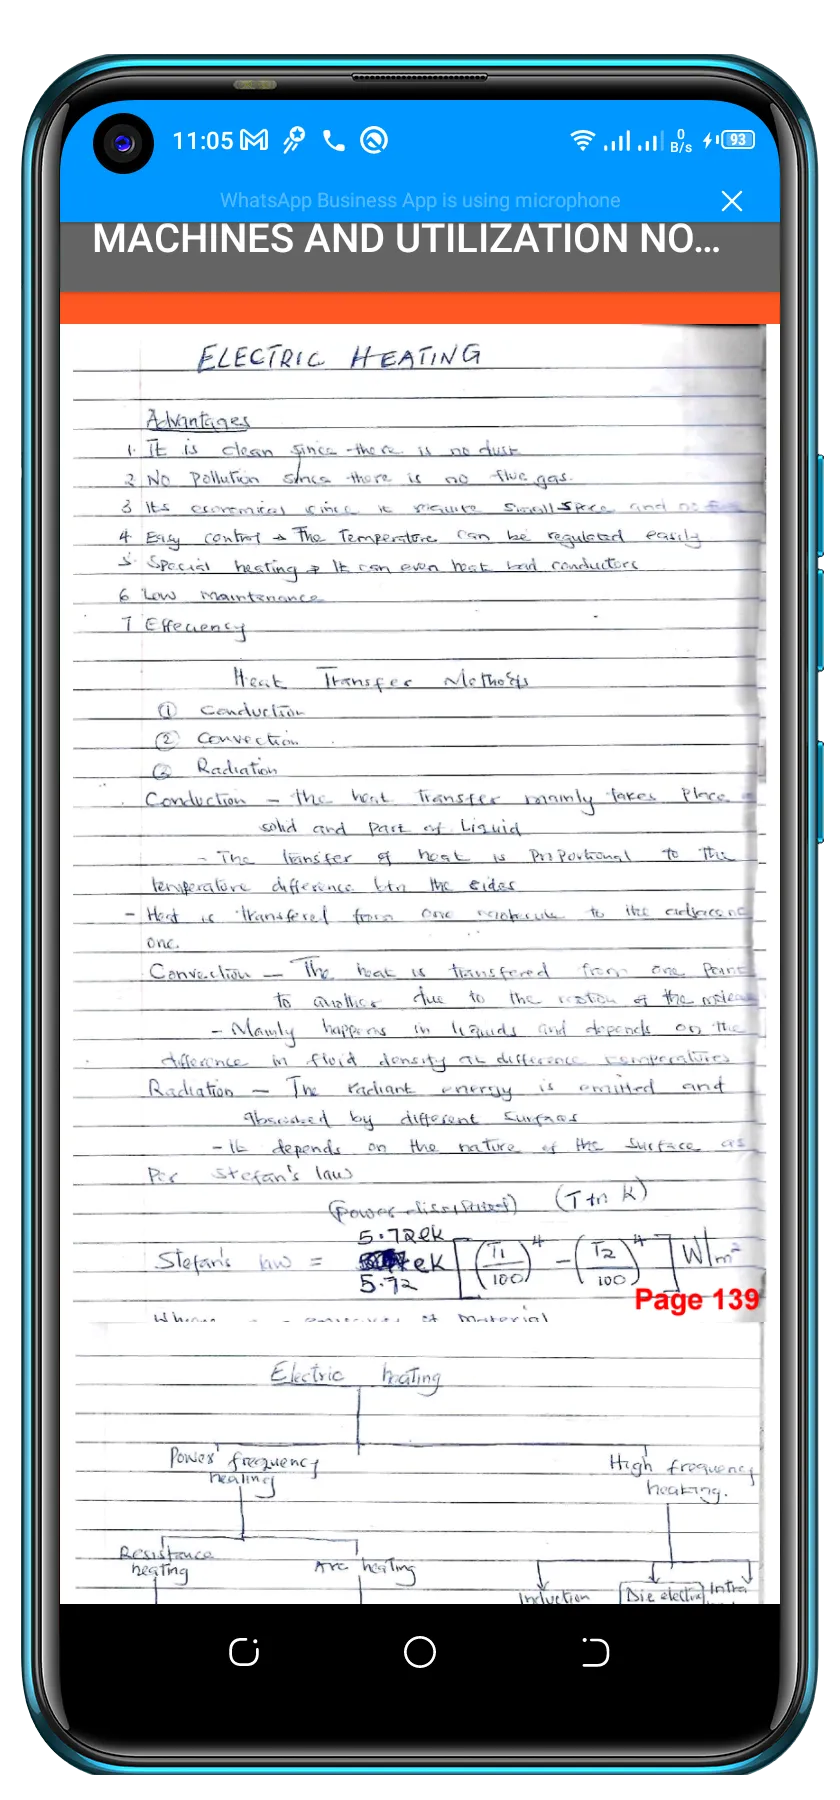 11:05
0
B/s
93
WhatsApp Business App is using microphone
MACHINES AND UTILIZATION NO...
ELECTRIC HEATING
Advantages
1. It is clean since there is no dust
2 No pollution since there is no flue gas.
3 Its economical since it require small space and no
4 Easy control → The Temperature can be regulated easily
5. Special heating → It can even heat bad conductors
6 Low maintenance
7 Effeciency
Heat Transfer Methods
① Conduction
② Convection
③ Radiation
Conduction - the heat Transfer mainly takes place
solid and part of Liquid
- The transfer of heat is proportional to the
temperature difference btn the sides
- Heat is transfered from one molecule to the adjacent
one.
Convection - The heat is transfered from one point
to another due to the motion of the
- Mainly happens in liquids and depends on the
difference in fluid density at difference temperatures
Radiation - The radiant energy is emitted and
absorbed by different surfaces
- It depends on the nature of the surface as
Per Stefan's law
(power dissipated) (T in K)
5.72ek
Stefan's law = ek [(T1/100)^4 - (T2/100)^4] W/m²
5.72
Page 139
Where material
Electric heating
Power frequency heating
High frequency heating.
Resistance heating
Arc heating
Induction
Die electric
Infra